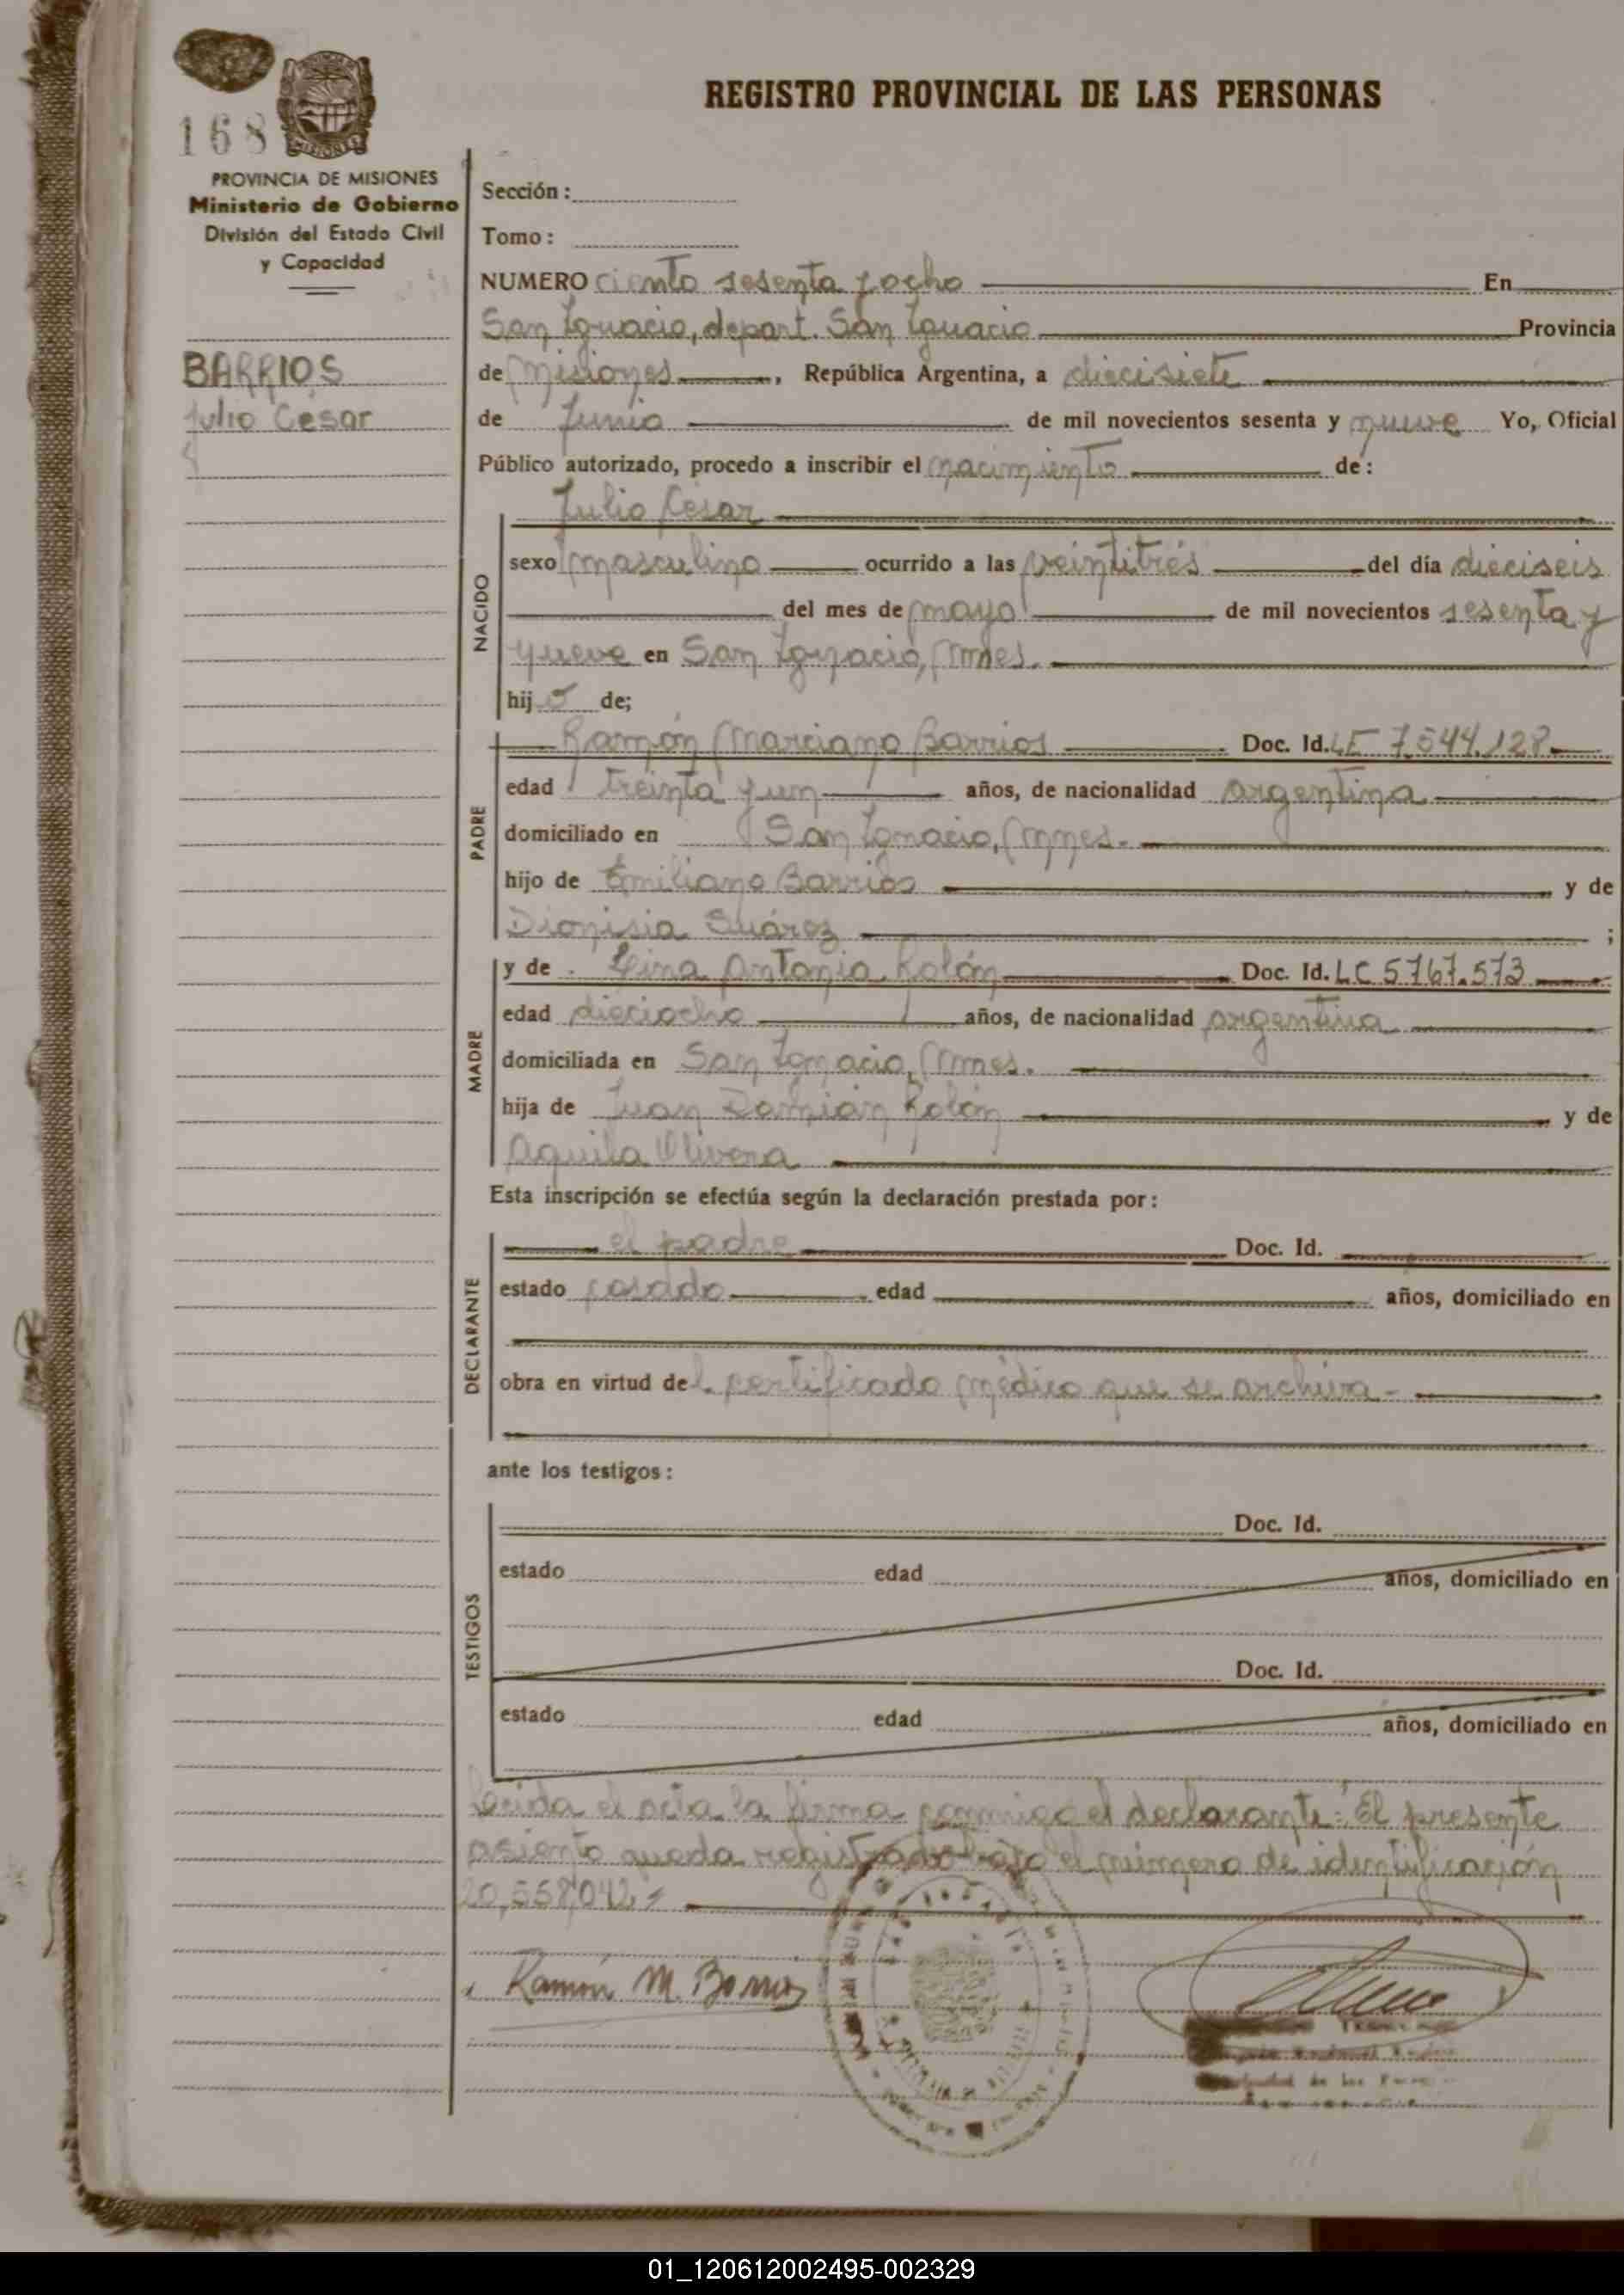 REGISTRO PROVINCIAL DE LAS PERSONAS
168
MISIONES
PROVINCIA DE MISIONES
Ministerio de Gobierno
División del Estado Civil
y Capacidad
BARRIOS
Julio César
Sección :
Tomo :
NUMERO ciento sesenta y ocho En
San Ignacio, depart. San Ignacio Provincia
de Misiones, República Argentina, a diecisiete
de Junio de mil novecientos sesenta y nueve Yo, Oficial
Público autorizado, procedo a inscribir el nacimiento de :
Julio César
NACIDO
sexo masculino ocurrido a las veintitrés del día dieciseis
del mes de mayo de mil novecientos sesenta y
nueve en San Ignacio, Mnes.
hijo de;
PADRE
Ramón Marciano Barrios Doc. Id. LE 7.544.128
edad treinta y un años, de nacionalidad argentina
domiciliado en San Ignacio, Mnes.
hijo de Emiliano Barrios y de
Dionisia Suárez ;
MADRE
y de Lina Antonia Rolón Doc. Id. LC 5767.573
edad dieciocho años, de nacionalidad argentina
domiciliada en San Ignacio, Mnes.
hija de Juan Damián Rolón y de
Aquila Olivera
Esta inscripción se efectúa según la declaración prestada por :
DECLARANTE
el padre Doc. Id.
estado casado edad años, domiciliado en
obra en virtud del certificado médico que se archiva -
ante los testigos :
TESTIGOS
Doc. Id.
estado edad años, domiciliado en
Doc. Id.
estado edad años, domiciliado en
Leída el acta la firma conmigo el declarante: El presente
asiento queda registrado bajo el número de identificación
20,558,042
Ramón M. Barrios
01_120612002495-002329